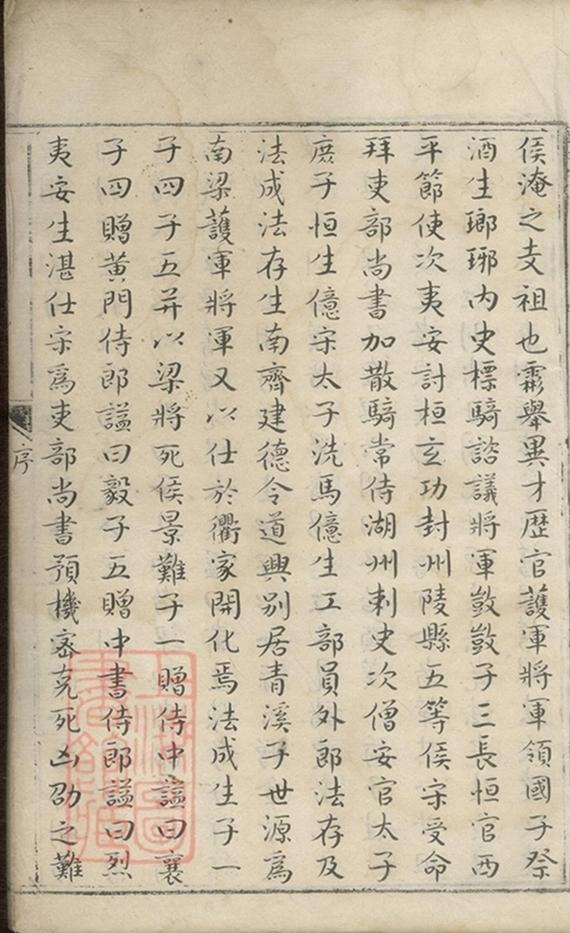 侯淹之支祖也霦舉異才歴官護軍將軍領國子祭
酒生瑯琊内史標騎諮議將軍敳敳子三長恒官西
平節使次夷安討桓玄功封州陵縣五等侯宋受命
拜吏部尚書加散騎常侍湖州刺史次僧安官太子
庻子恒生億宋太子洗馬億生工部員外郎法存及
法成法存生南齊建德令道興别居青溪子世源爲
南梁護軍將軍又以仕於衢家開化焉法成生子一
子四子五并以梁將死侯景難子一贈侍中謚曰襄
子四贈黄門侍郎謚曰毅子五贈中書侍郎謚曰烈
夷安生湛仕宋爲吏部尚書預機密竟死凶劭之難
序